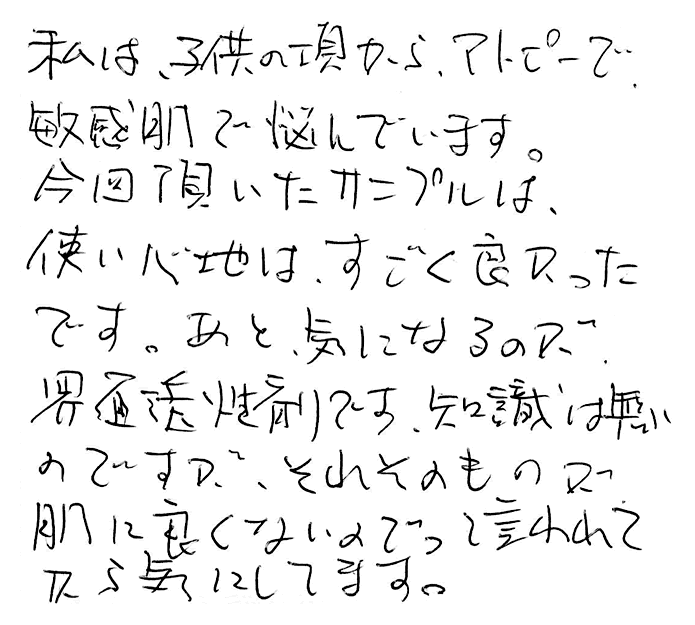 私は、子供の頃から、アトピーで、
敏感肌で悩んでいます。
今回頂いたサンプルは、
使い心地は、すごく良かった
です。あと、気になるのが、
界面活性剤です、知識は無い
のですが、それそのものが
肌に良くないのでって言われて
から気にしてます。